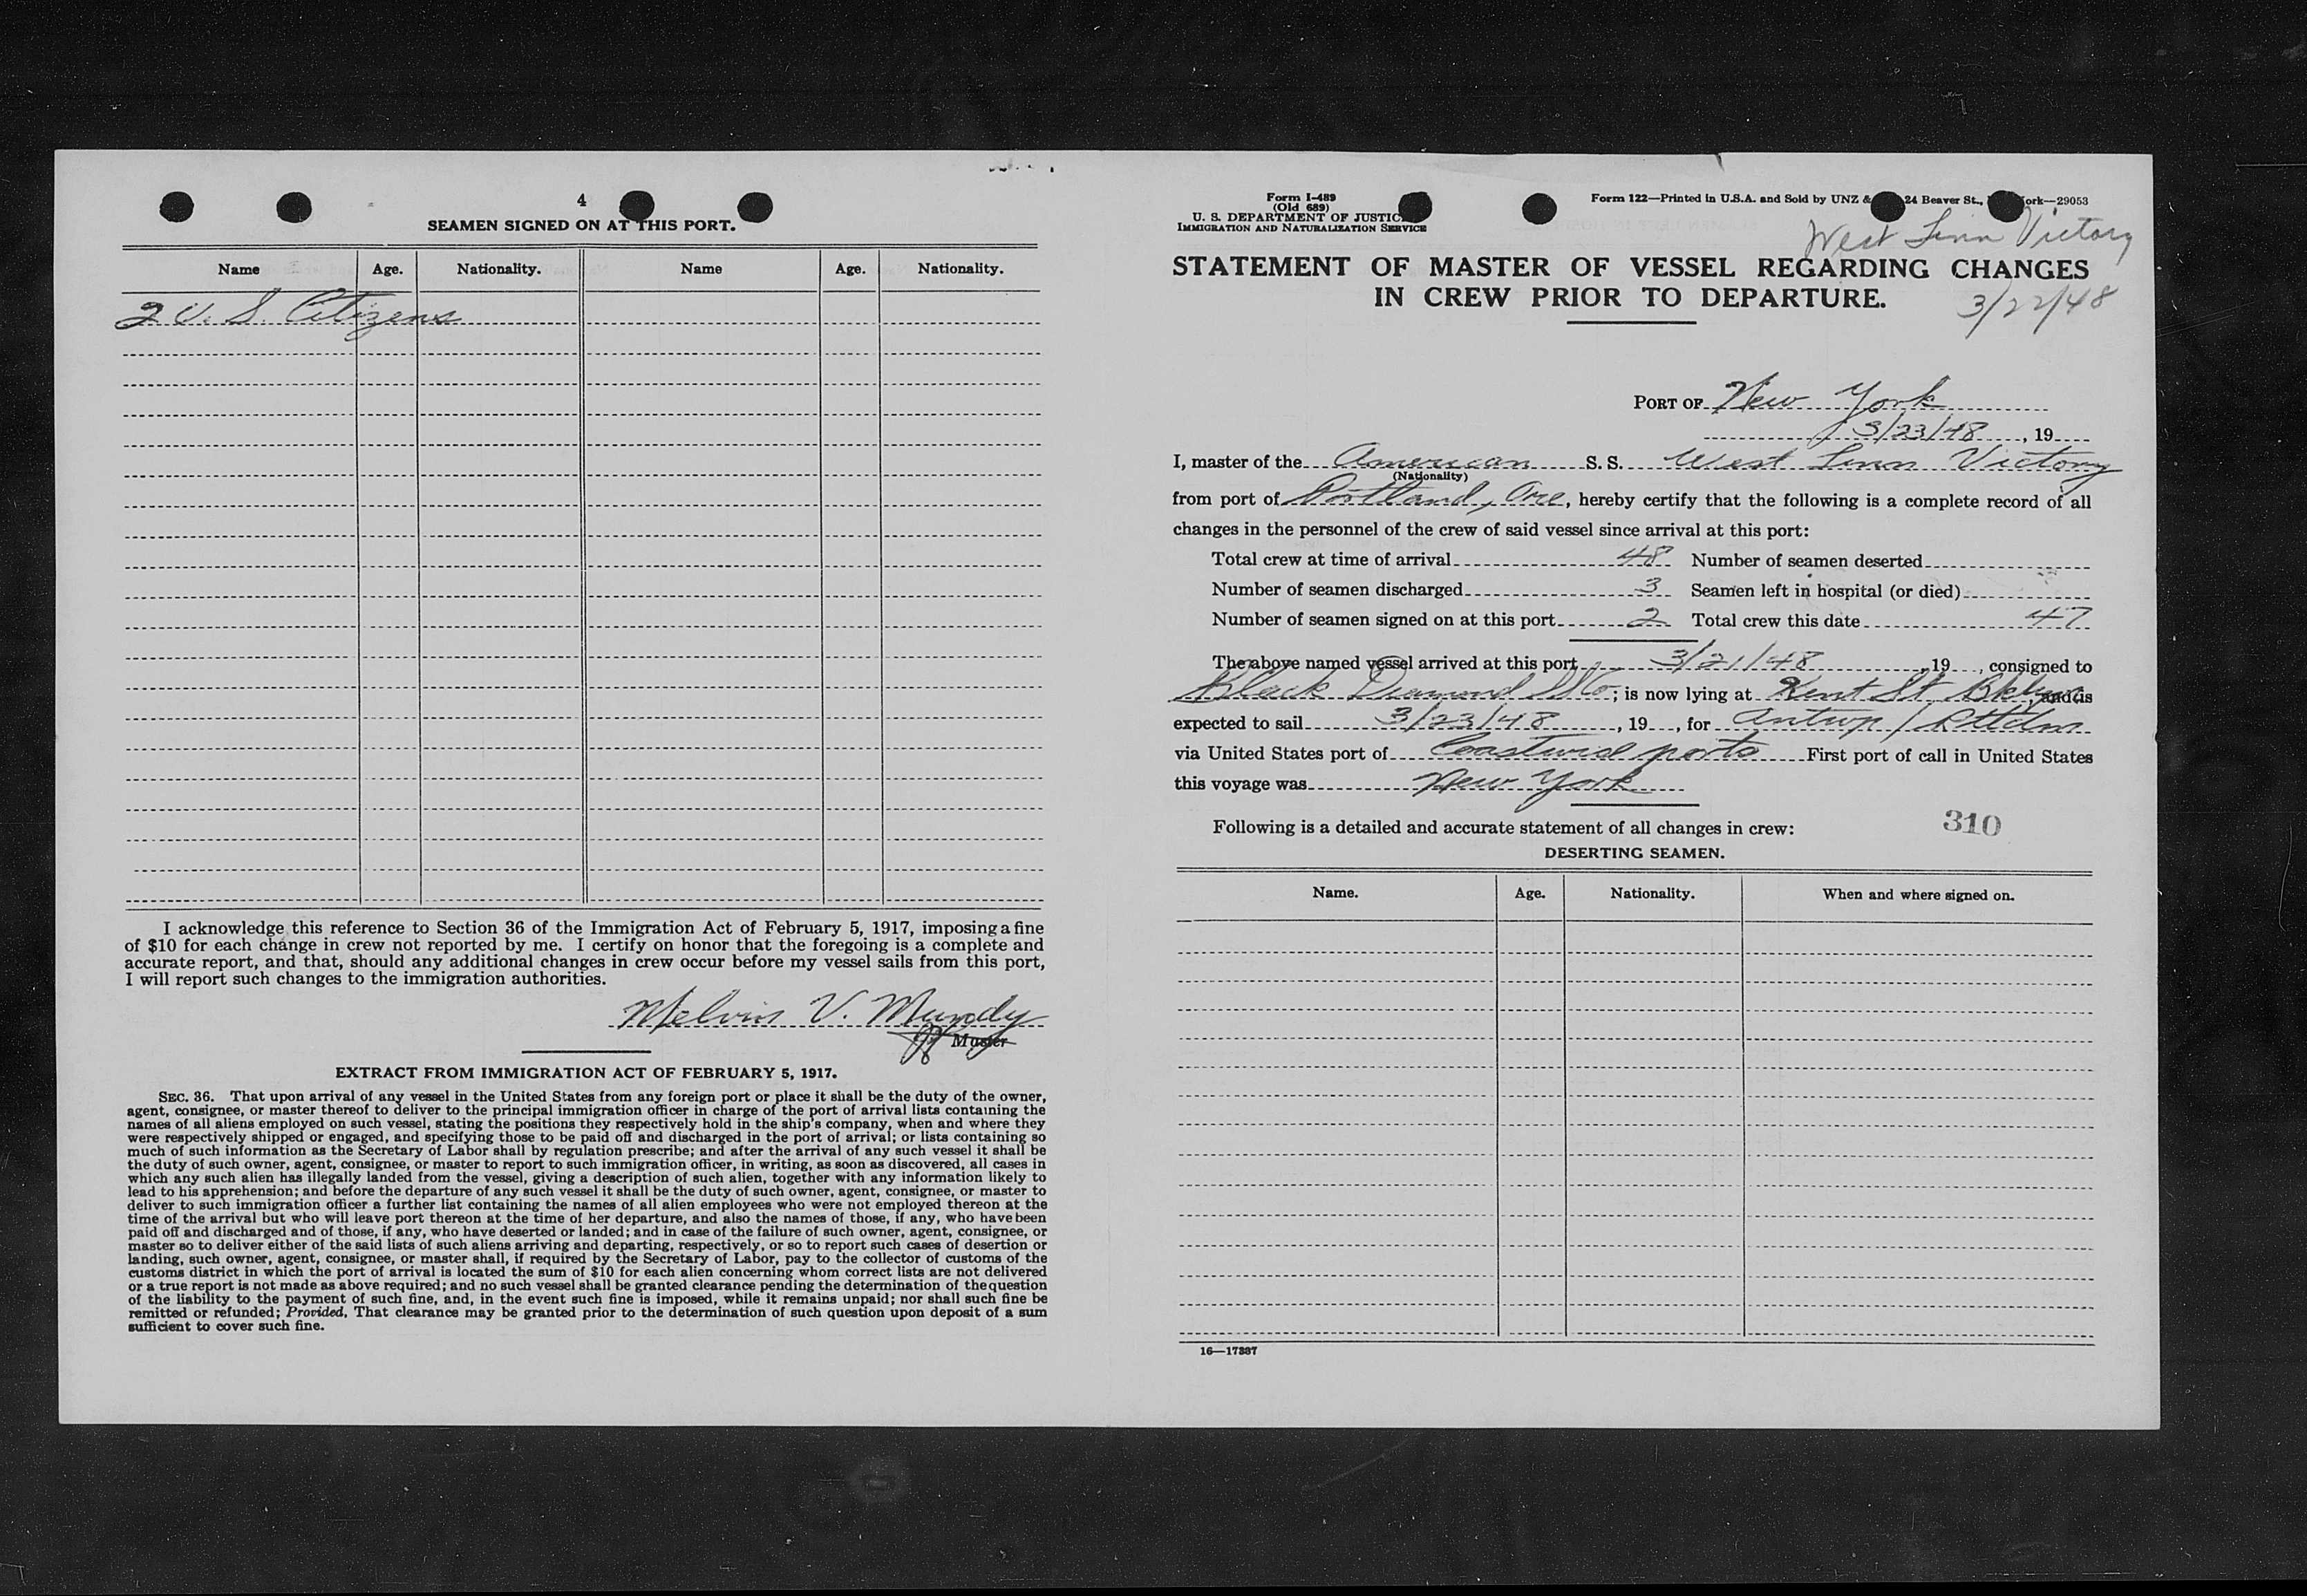 4
SEAMEN SIGNED ON AT THIS PORT.
Name Age. Nationality. Name Age. Nationality.
2 U. S. Citizens
I acknowledge this reference to Section 36 of the Immigration Act of February 5, 1917, imposing a fine
of $10 for each change in crew not reported by me. I certify on honor that the foregoing is a complete and
accurate report, and that, should any additional changes in crew occur before my vessel sails from this port,
I will report such changes to the immigration authorities.
Melvin V. Mundy
Master
EXTRACT FROM IMMIGRATION ACT OF FEBRUARY 5, 1917.
SEC. 36. That upon arrival of any vessel in the United States from any foreign port or place it shall be the duty of the owner,
agent, consignee, or master thereof to deliver to the principal immigration officer in charge of the port of arrival lists containing the
names of all aliens employed on such vessel, stating the positions they respectively hold in the ship's company, when and where they
were respectively shipped or engaged, and specifying those to be paid off and discharged in the port of arrival; or lists containing so
much of such information as the Secretary of Labor shall by regulation prescribe; and after the arrival of any such vessel it shall be
the duty of such owner, agent, consignee, or master to report to such immigration officer, in writing, as soon as discovered, all cases in
which any such alien has illegally landed from the vessel, giving a description of such alien, together with any information likely to
lead to his apprehension; and before the departure of any such vessel it shall be the duty of such owner, agent, consignee, or master to
deliver to such immigration officer a further list containing the names of all alien employees who were not employed thereon at the
time of the arrival but who will leave port thereon at the time of her departure, and also the names of those, if any, who have been
paid off and discharged and of those, if any, who have deserted or landed; and in case of the failure of such owner, agent, consignee, or
master so to deliver either of the said lists of such aliens arriving and departing, respectively, or so to report such cases of desertion or
landing, such owner, agent, consignee, or master shall, if required by the Secretary of Labor, pay to the collector of customs of the
customs district in which the port of arrival is located the sum of $10 for each alien concerning whom correct lists are not delivered
or a true report is not made as above required; and no such vessel shall be granted clearance pending the determination of the question
of the liability to the payment of such fine, and, in the event such fine is imposed, while it remains unpaid; nor shall such fine be
remitted or refunded; Provided, That clearance may be granted prior to the determination of such question upon deposit of a sum
sufficient to cover such fine.
Form I-489
(Old 689)
U. S. DEPARTMENT OF JUSTIC
IMMIGRATION AND NATURALIZATION SERVICE
Form 122—Printed in U.S.A. and Sold by UNZ & 24 Beaver St., ork—29053
West Linn Victory
STATEMENT OF MASTER OF VESSEL REGARDING CHANGES
IN CREW PRIOR TO DEPARTURE.
3/22/48
PORT OF New York
3/23/48, 19
I, master of the American S. S. West Linn Victory
(Nationality)
from port of Portland, Ore, hereby certify that the following is a complete record of all
changes in the personnel of the crew of said vessel since arrival at this port:
Total crew at time of arrival 48 Number of seamen deserted
Number of seamen discharged 3 Seamen left in hospital (or died)
Number of seamen signed on at this port 2 Total crew this date 47
The above named vessel arrived at this port 3/21/48, 19, consigned to
Black Diamond SS Co; is now lying at Kent St Bklyn, and is
expected to sail 3/23/48, 19, for Antwp / Rttdm
via United States port of Coastwise ports First port of call in United States
this voyage was New York
310
Following is a detailed and accurate statement of all changes in crew:
DESERTING SEAMEN.
Name. Age. Nationality. When and where signed on.
16—17337